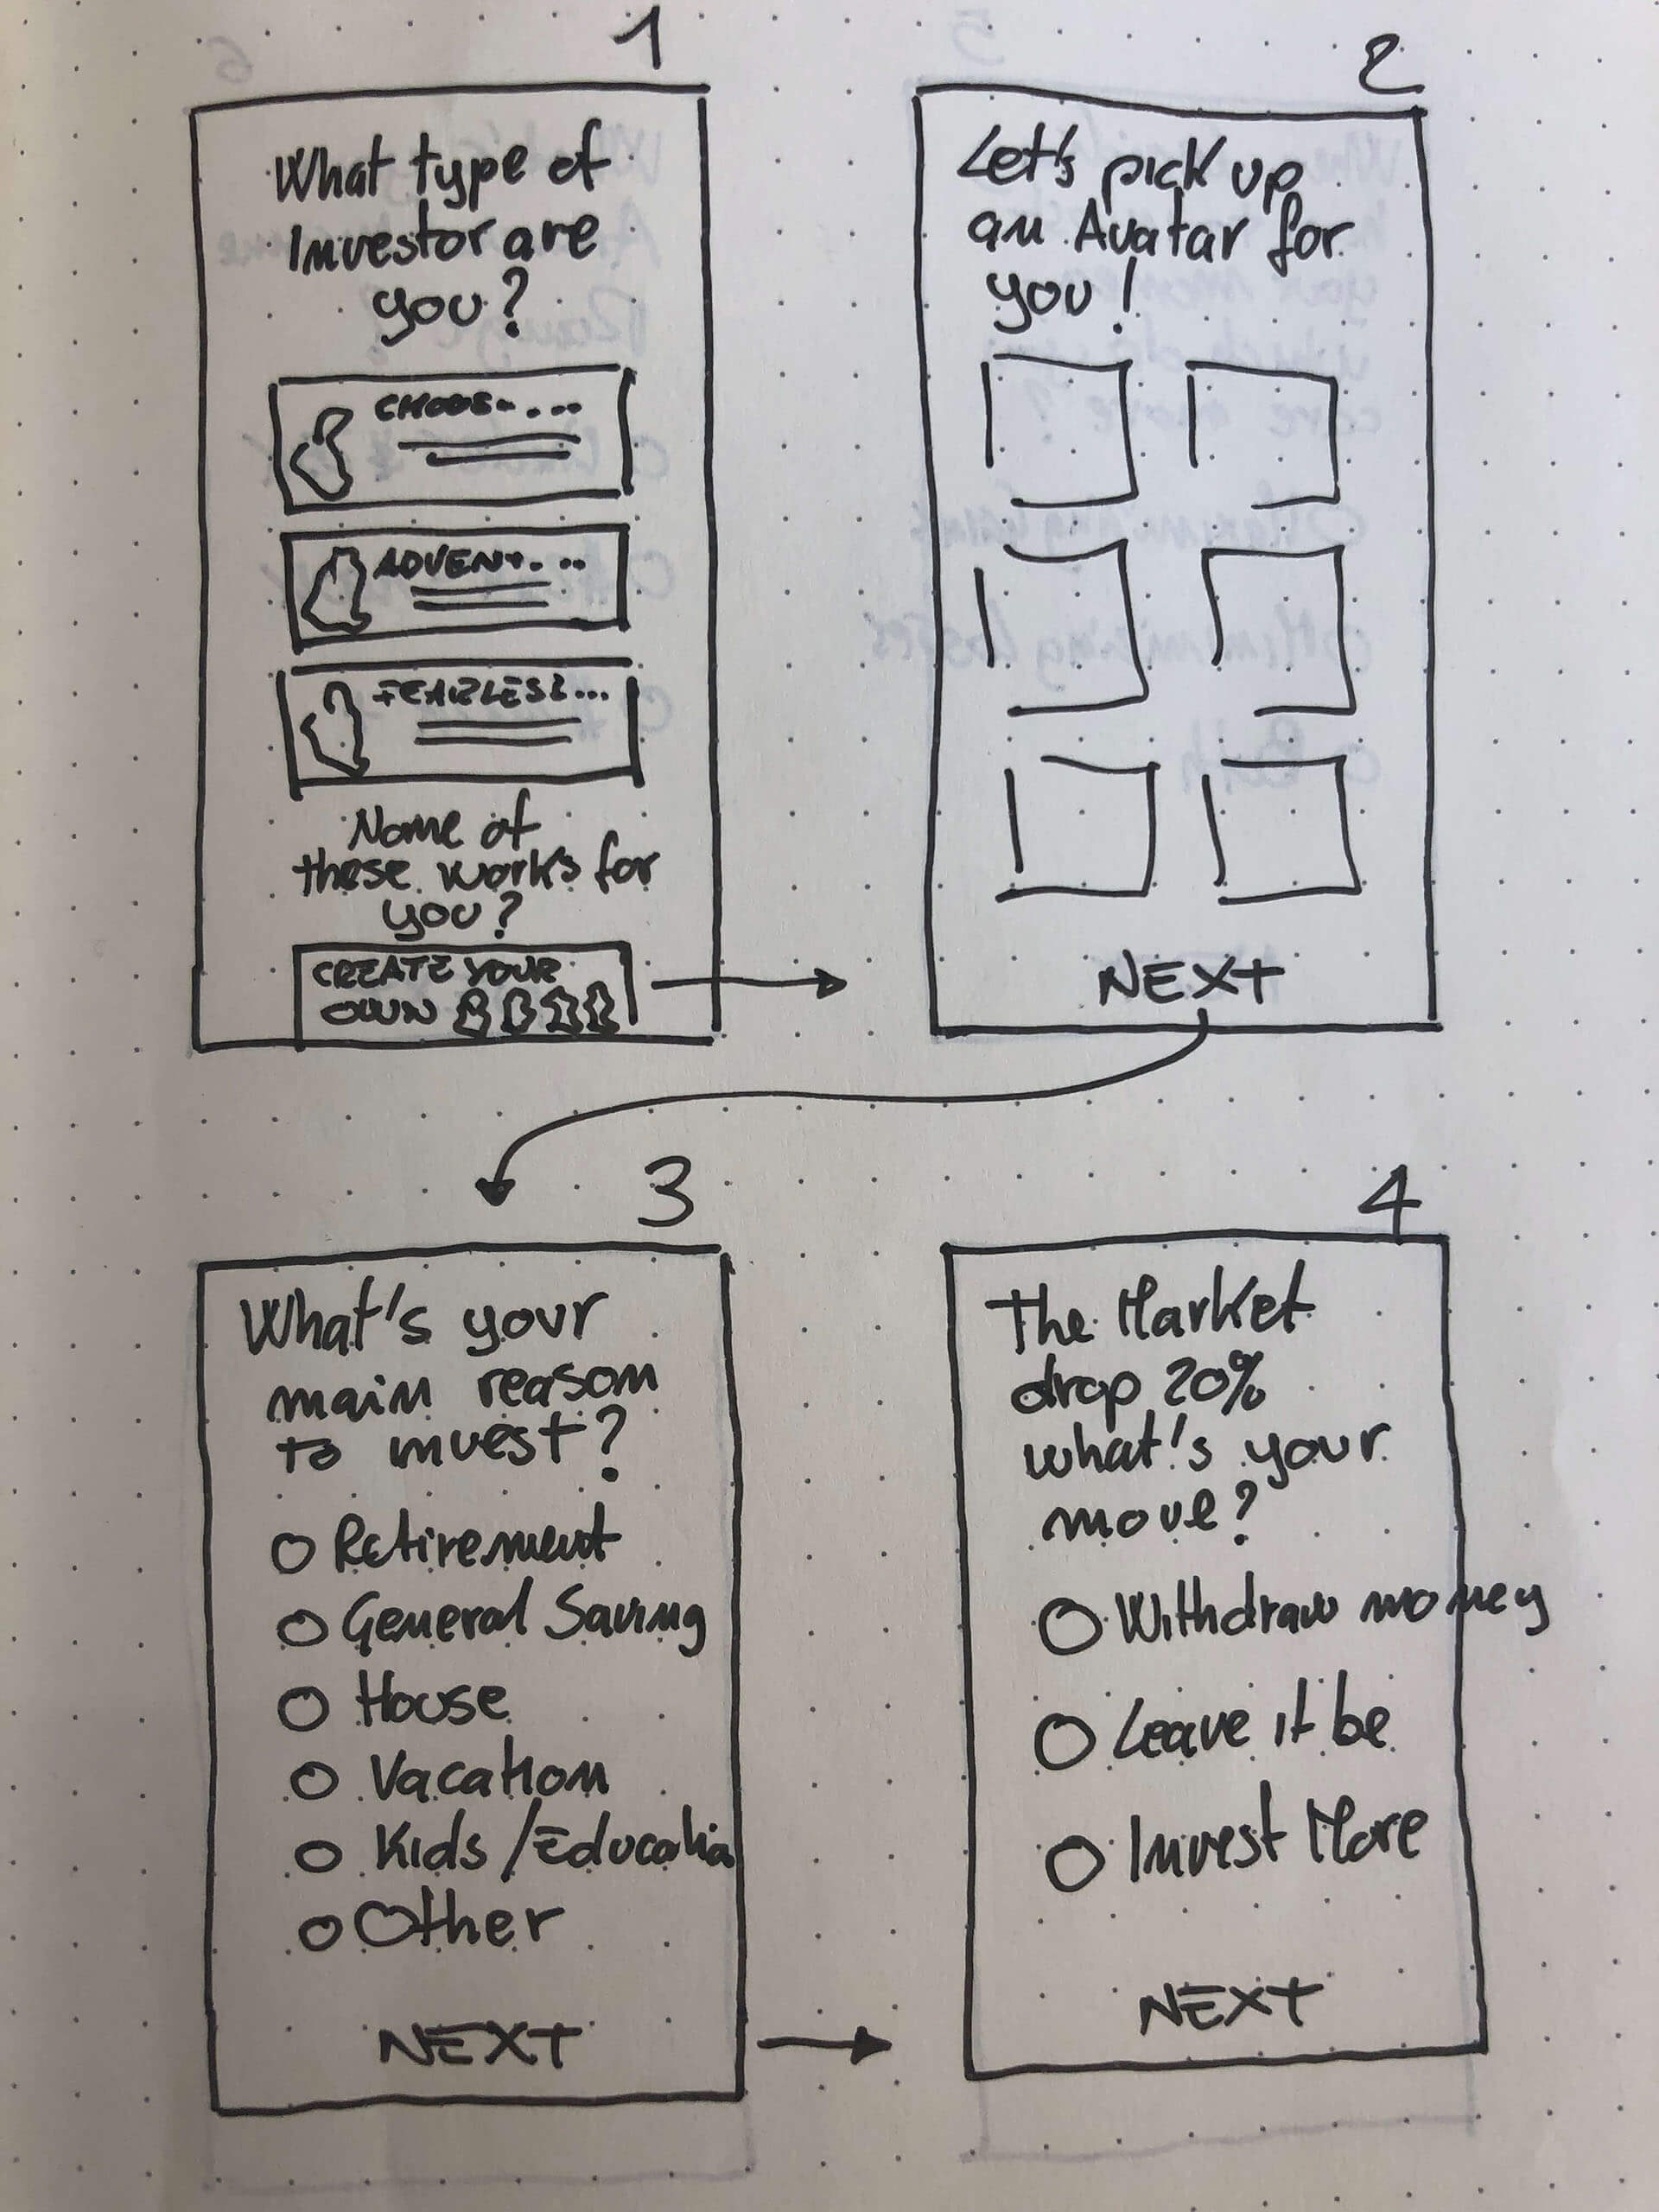 1
What type of
Investor are
you?
CHOOS....
ADVENT...
FEARLESS...
None of
these works for
you?
CREATE YOUR
OWN
2
Let's pick up
an Avatar for
you!
NEXT
3
What's your
main reason
to invest?
Retirement
General Saving
House
Vacation
Kids/Educatio
Other
NEXT
4
The Market
drop 20%
what's your
move?
Withdraw money
Leave it be
Invest More
NEXT